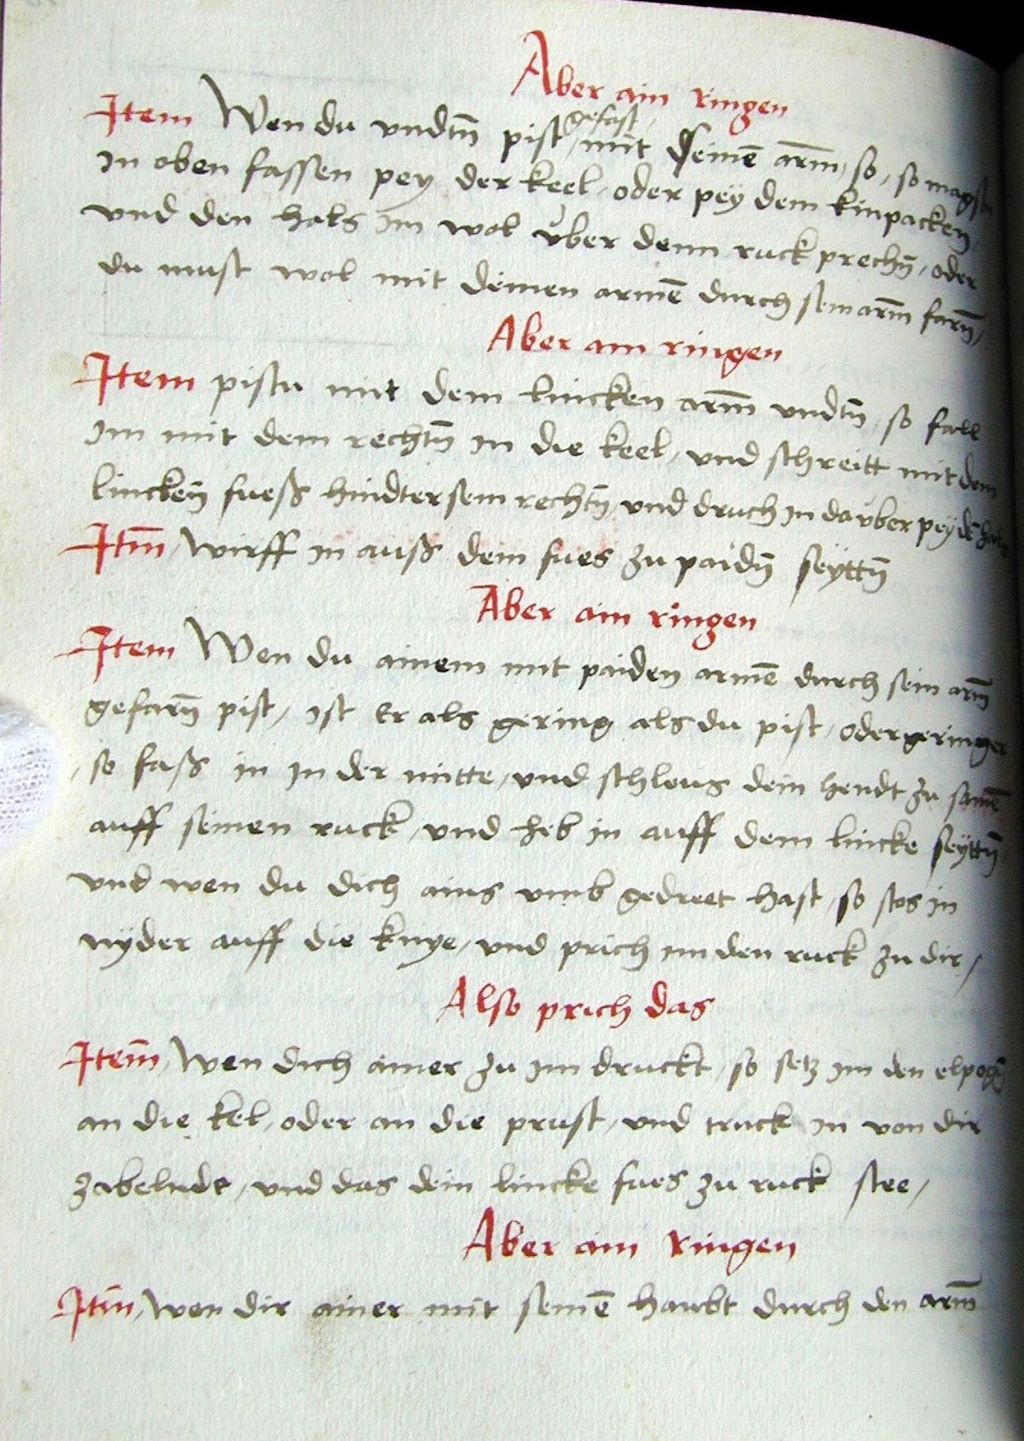 Aber ain ringen
Item Wen du vndtn̄ pist gefast, mit Seinē arm̄, so, so magstu
in oben fassen pey der keel, oder pey dem kinpacken
vnd den hals im wol vber denn ruck prechn̄, oder
du must wol mit deinen armē durch sein arm̄ farn̄,
Aber ain ringen
Item pistu mit dem lincken arm̄ vndtn̄, so fall
im mit dem rechtn̄ in die keel, vnd schreitt mit dem
lincken̄ fueß hindter sein rechtn̄ vnd druch in darvber pey dē hals
Itm̄, wirff in auß dem fues zu paidn̄ seyttn̄
Aber ain ringen
Item Wen du ainem mit paiden armē durch sein arm̄
gefarn̄ pist, ist Er als gering als du pist, oder geringer
, so faß in in der mitte, vnd schleus dein hendt zu samē
auff seinen ruck, vnd heb in auff dem lincke seyttn̄,
vnd wen du dich ains vmb gedreet hast, so stos in
nyder auff die knye, vnd prich im den ruck zu dir,
Also prich das
Item̄, Wen dich ainer zu im druckt, so setz im den elpogn̄
an die kel, oder an die prust, vnd truck in von dir
zabelndt, vnd das dein lincke fues zu ruck stee,
Aber ain Ringen
Itm̄, wen dir ainer mit seinē haubt durch den arm̄